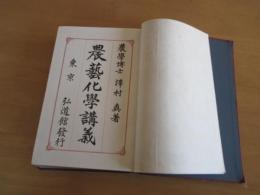 農學博士 澤村 真著
農藝化學講義
東京 弘道館發行